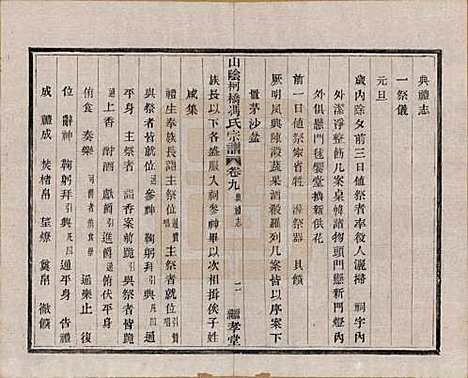 典禮志
一祭儀
元旦
歲內除夕前三日值祭者率役人灑掃 祠宇內
外潔淨整飭几案桌韓諸物頭門懸新門燈內
外俱懸門毬饗堂擠新供花
前一日值祭家省牲 滌祭器 具饌
厥明夙興陳設蔬果酒饌羅列几案皆以序案下
置茅沙盆
山陰柯橋馮氏宗譜 卷九 典禮志
二 繼孝堂
族長以下各盛服入祠參神畢以次相挨俟子姓
咸集
禮生奉族長詣主祭位 通 主祭者就位 引贊
與祭者皆就位 通 參神 鞠躬拜 引興 凡四 通
平身 主祭者 詣香案前跪 引 與祭者皆跪
通 上香 酹酒 獻爵 引 進爵 通 俯伏平身 引
侑食 奏樂 司爵者侑食 通 樂止 復
位 辭神 鞠躬拜 引興 凡四 通 平身 告禮
成 禮成 焚楮帛 望燎 奠帛 徹饌